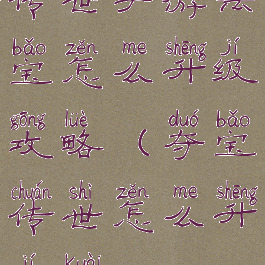 bǎo zěn me shēng jí
宝怎么升级
gōng lüè duó bǎo
攻略(夺宝
chuán shì zěn me shēng
传世怎么升